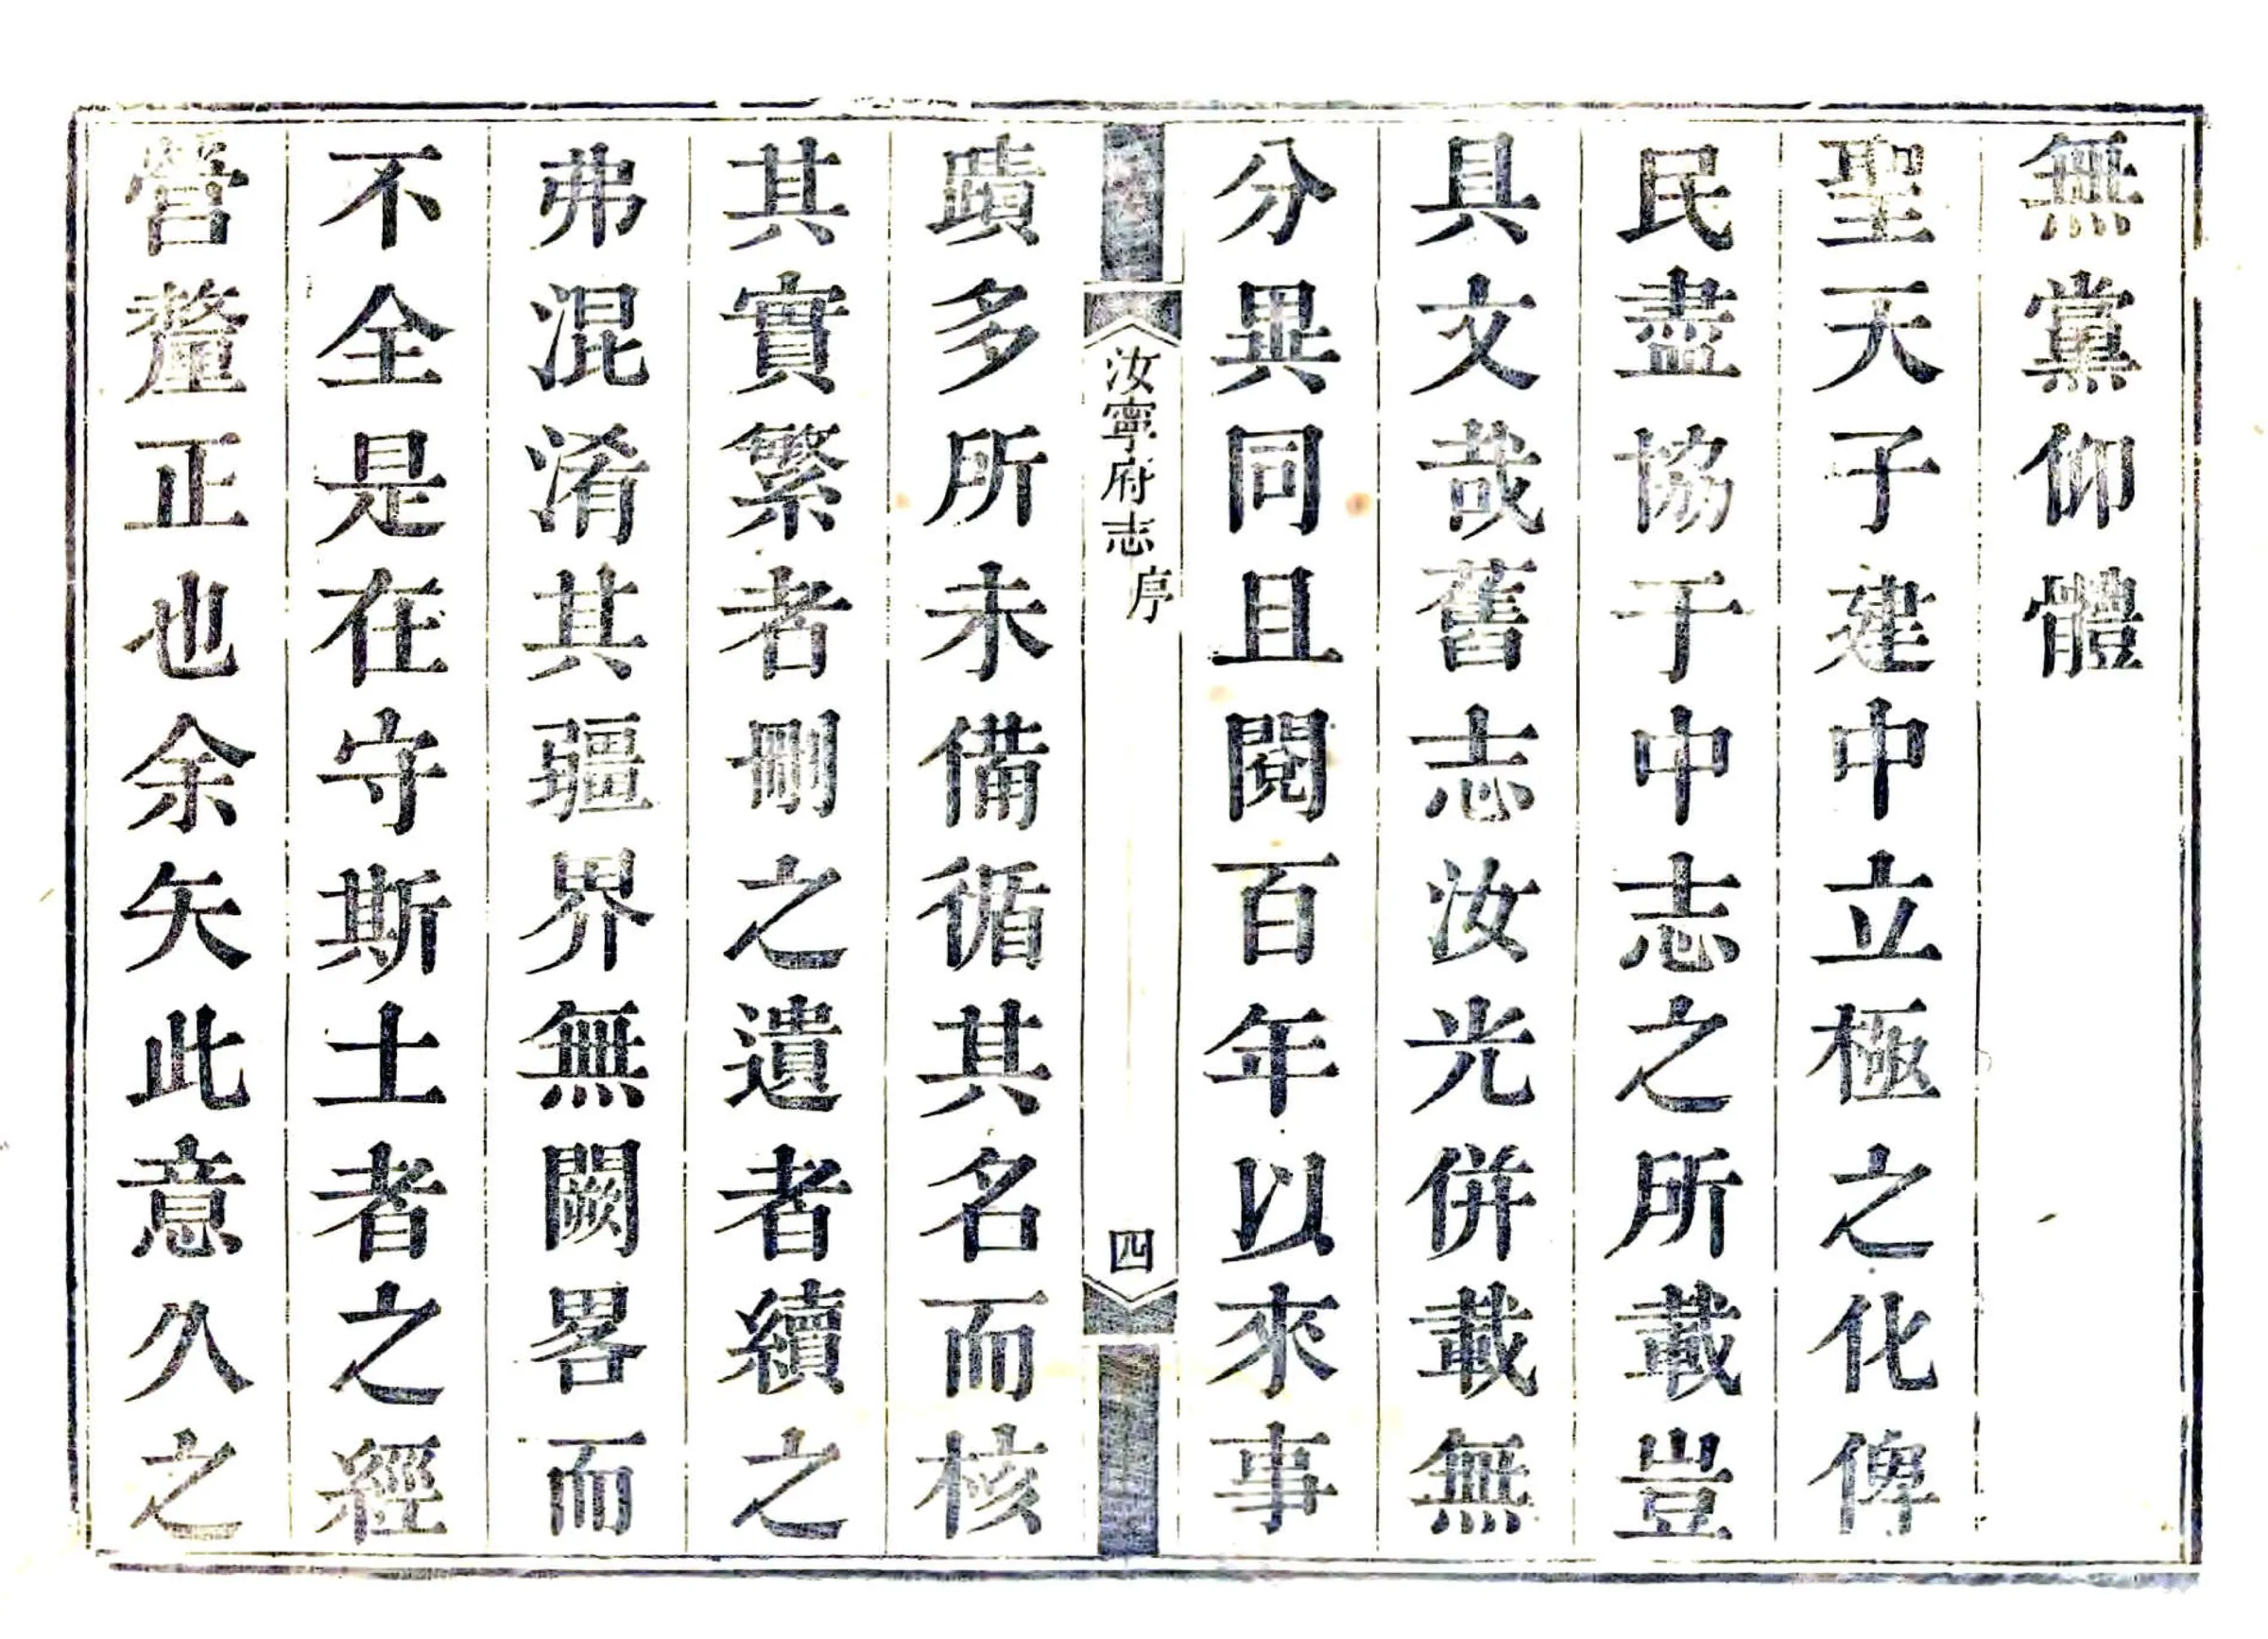 無黨仰體
聖天子建中立極之化俾
民盡協于中志之所載豈
具文哉舊志汝光併載無
分異同且閱百年以來事
汝寧府志
序
四
蹟多所未備循其名而核
其實繁者刪之遺者續之
弗混淆其疆界無闕畧而
不全是在守斯土者之經
營釐正也余矢此意久之